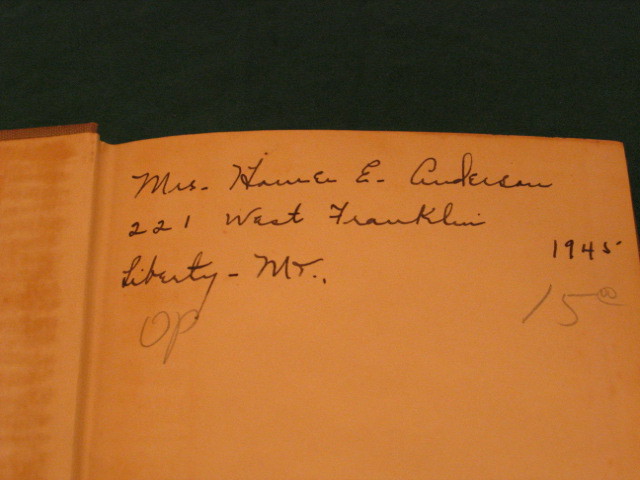 Mrs. Homer E. Anderson
221 West Franklin
1945
Liberty - Mo.,
OP
15 00